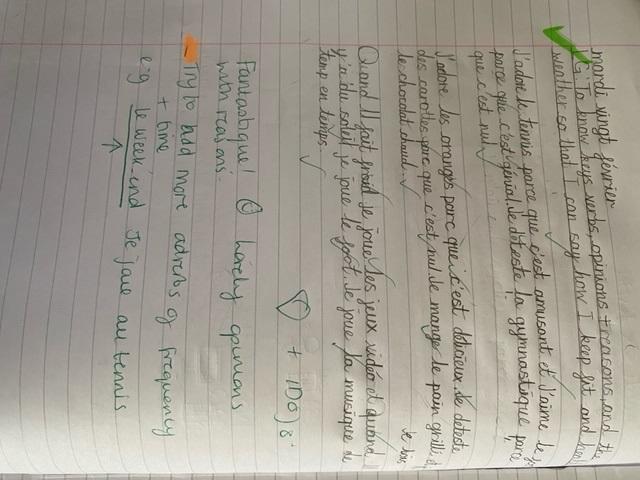 mardi vingt février
LG: To know keys verbs, opinions + reasons, and the
weather so that I can say how I keep fit and
J'adore le tennis parce que c'est amusant et J'aime le
parce que c'est génial. Je déteste la gymnastique parce
que c'est nul
J'adore les oranges parc que c'est délicieux. Je deteste
des carottes parc que c'est nul. Je mange le pain grillé et
Je bois
le chocolat chaud.
Quand Il fait froid Je joue les jeux vidéo et quand
y'a du soleil je joue le foot. Je joue la musique de
temp en temps.
Fantastique! Lovely opinions
with reasons.
Try to add more adverbs of frequency
+ time
e.g le week-end Je joue au tennis